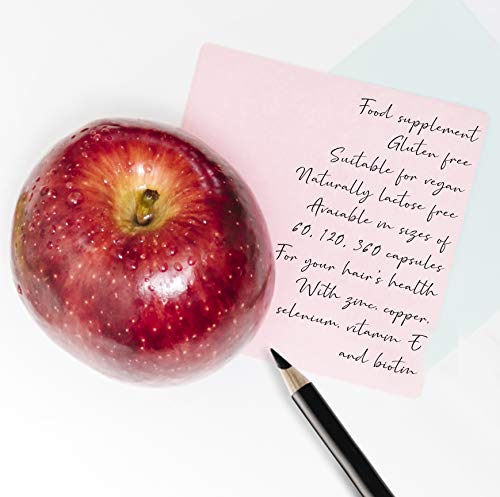 Food supplement
Gluten free
Suitable for vegan
Naturally lactose free
Avaiable in sizes of
60, 120, 360 capsules
For your hair's health
With zinc, copper,
selenium, vitamin E
and biotin